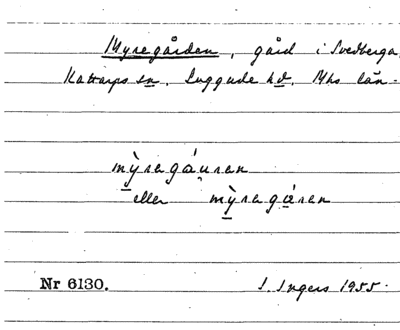 Myregården, gård i Svedberga,
Kattarps sn. Luggude hd. Mhs län.
mỳragáu̯ran
eller mỳragáran
Nr 6130.
I. Ingers 1955.